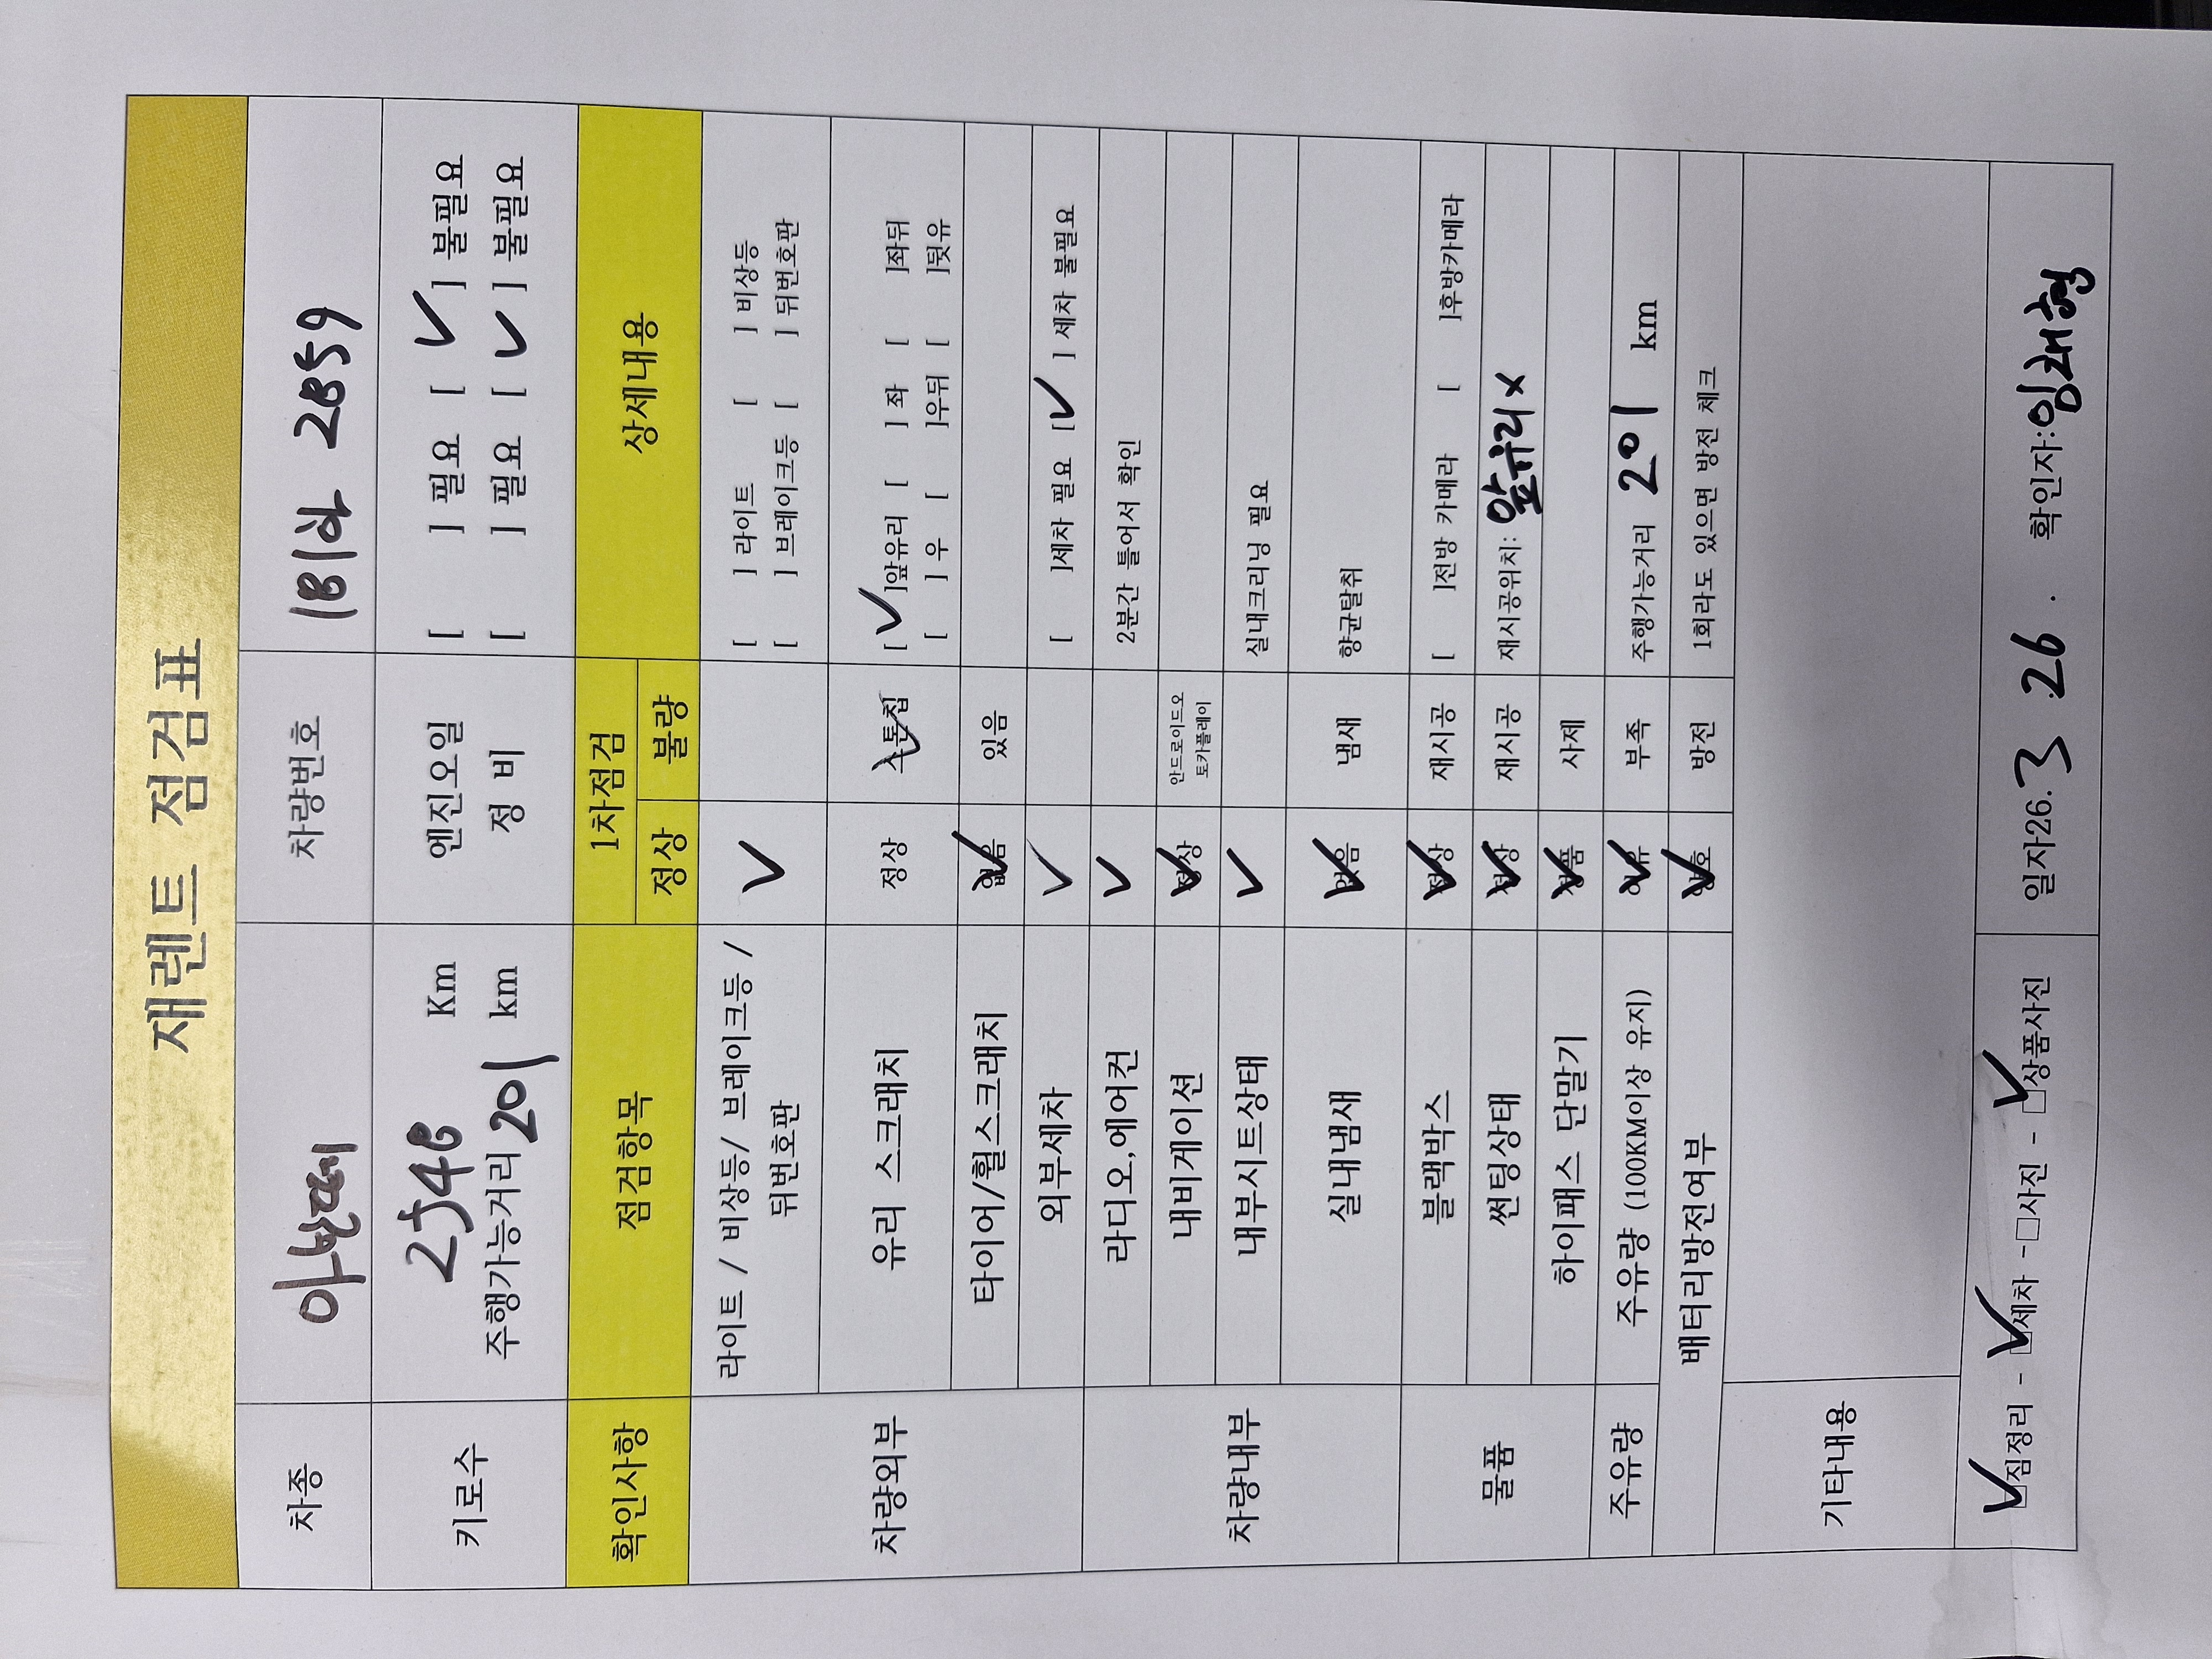 재렌트 점검표
차종 아반떼 차량번호 181하 2859
키로수 2548 Km 엔진오일 [ ] 필요 [ ✓ ] 불필요
주행가능거리 201 km 정 비 [ ] 필요 [ ✓ ] 불필요
확인사항 점검항목 1차점검 상세내용
정상 불량
차량외부 라이트 / 비상등/ 브레이크등 / 뒤번호판 ✓ [ ] 라이트 [ ] 비상등
[ ] 브레이크등 [ ] 뒤번호판
유리 스크래치 정상 스톤칩 ✓ [ ✓ ]앞유리 [ ] 좌 [ ]좌뒤
[ ] 우 [ ]우뒤 [ ]뒷유
타이어/휠스크래치 없음 ✓ 있음
외부세차 ✓ [ ]세차 필요 [ ✓ ] 세차 불필요
차량내부 라디오,에어컨 ✓ 2분간 틀어서 확인
내비게이션 정상 ✓ 안드로이드오토카플레이
내부시트상태 ✓ 실내크리닝 필요
실내냄새 없음 ✓ 냄새 향균탈취
물품 블랙박스 정상 ✓ 재시공 [ ]전방 카메라 [ ]후방카메라
썬팅상태 정상 ✓ 재시공 재시공위치: 앞유리 x
하이패스 단말기 정품 ✓ 사제
주유량 주유량 (100KM이상 유지) 여유 ✓ 부족 주행가능거리 201 km
배터리방전여부 양호 ✓ 방전 1회라도 있으면 방전 체크
기타내용
☑짐정리 - ☑세차 -□사진 - ☑상품사진 일자26. 3 .26 . 확인자:임채형